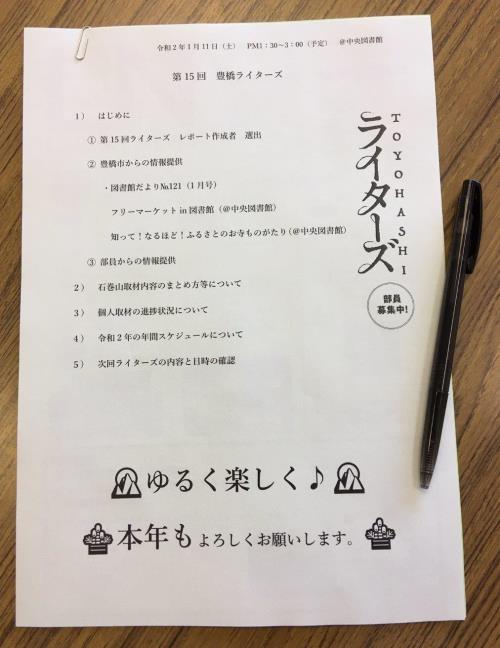 令和2年1月11日（土） PM1：30～3：00（予定） ＠中央図書館
第15回 豊橋ライターズ
1） はじめに
① 第15回ライターズ レポート作成者 選出
② 豊橋市からの情報提供
・図書館だより№121（1月号）
フリーマーケットin図書館（＠中央図書館）
知って！なるほど！ふるさとのお寺ものがたり（＠中央図書館）
③ 部員からの情報提供
2） 石巻山取材内容のまとめ方等について
3） 個人取材の進捗状況について
4） 令和2年の年間スケジュールについて
5） 次回ライターズの内容と日時の確認
TOYOHASHI
ライターズ
部員
募集中!
ゆるく楽しく♪
本年もよろしくお願いします。